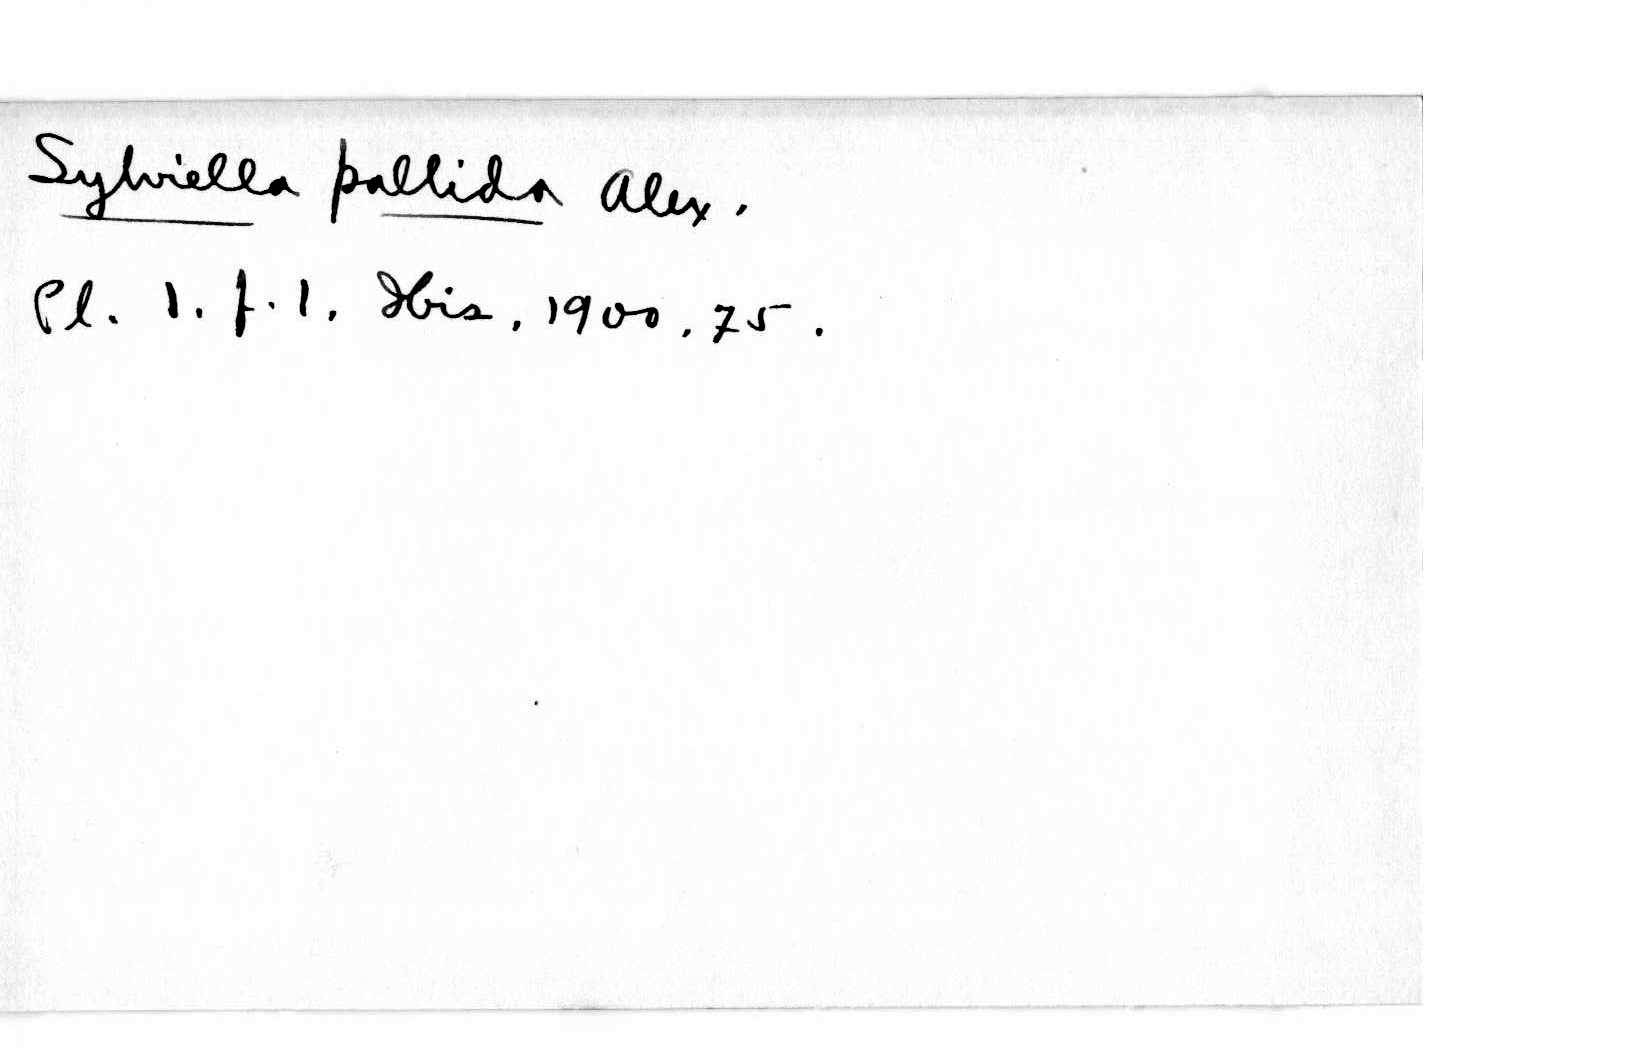 Sylviella pallida Alex.
Pl. 1. f. 1. Ibis, 1900, 75.